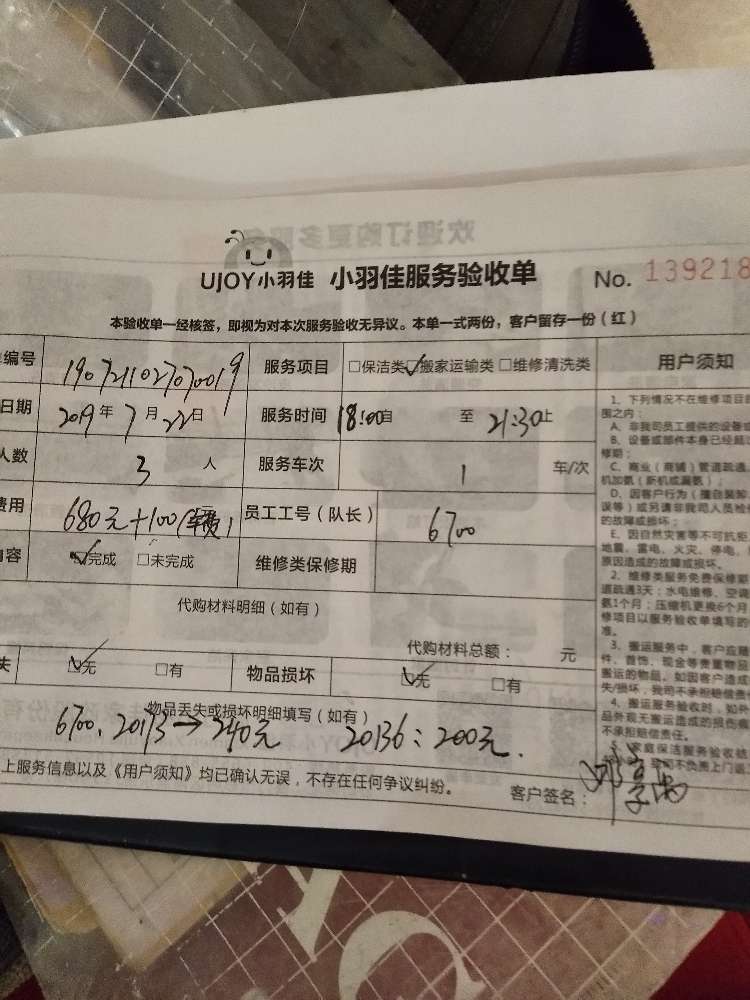 欢迎订购更多服务
UJOY小羽佳 小羽佳服务验收单 No. 139218
本验收单一经核签，即视为对本次服务验收无异议。本单一式两份，客户留存一份（红）
编号 1907211027070019 服务项目 □保洁类 ☑搬家运输类 □维修清洗类 用户须知
日期 2019年7月22日 服务时间 18:00 至 21:30
人数 3 人 服务车次 1 车/次
费用 680元+100（车费） 员工工号（队长） 6700
内容 ☑完成 □未完成 维修类保修期
代购材料明细（如有）
代购材料总额： 元
失 ☑无 □有 物品损坏 ☑无 □有
物品丢失或损坏明细填写（如有）
6700、20173→240元 20136：200元.
上服务信息以及《用户须知》均已确认无误，不存在任何争议纠纷。 客户签名：
1、下列情况不在维修项目
围之内：
A、非我司员工提供的设备
B、设备或部件本身已经超
修期；
C、商业（商铺）管道疏通
机加氨（新机或漏氨）；
D、因客户行为（擅自装卸
误等）或另请非我司人员检
的故障或损坏；
E、因自然灾害等不可抗拒
地震、雷电、火灾、停电、
原因造成的故障或损坏。
2、维修类服务免费保修期
道疏通3天；水电维修、空调
氨1个月；压缩机更换6个月
修项目以服务验收单填写的
准。
3、搬运服务中，客户应
件、首饰、现金等贵重物品
搬运的物品。如因客户造成
失/损坏，我司不承担赔偿责
4、搬运服务验收时，如外
品外观无搬运造成的损伤痕
不承担赔偿责任。
家庭保洁服务验收
不负责上门返